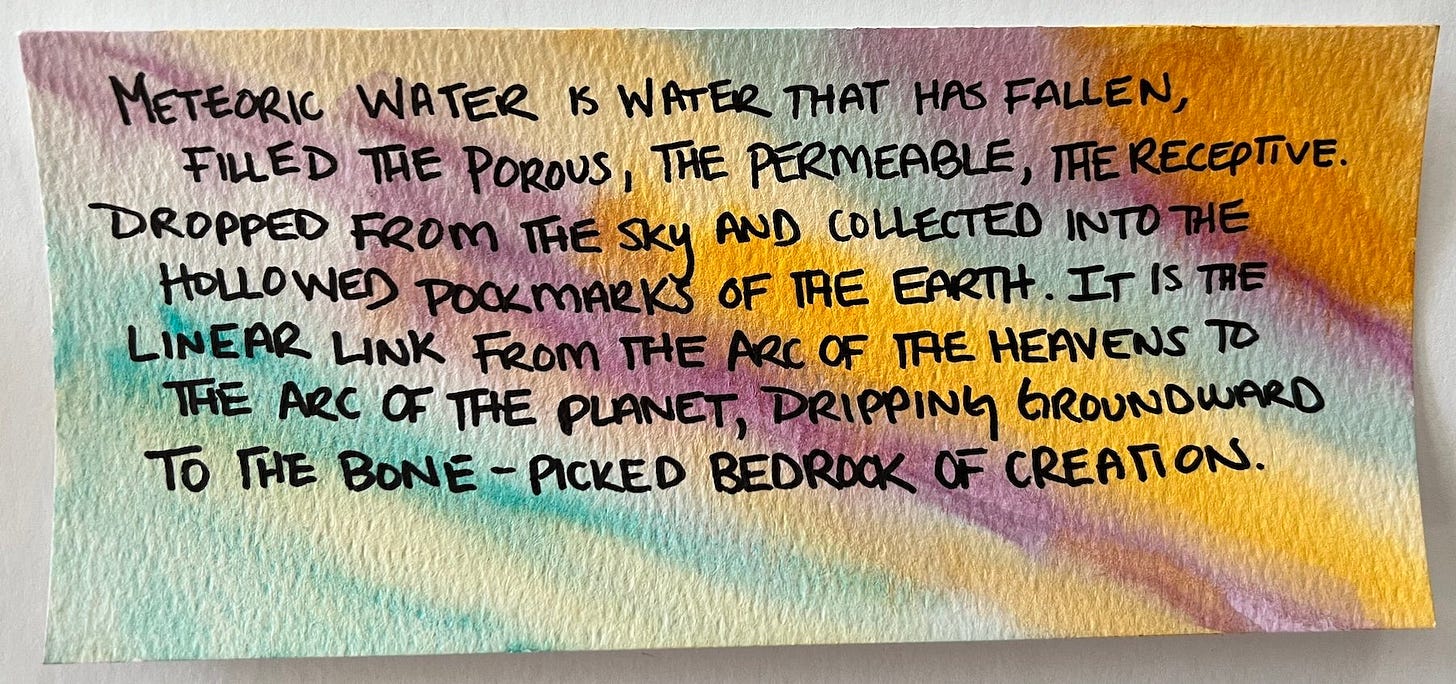 METEORIC WATER IS WATER THAT HAS FALLEN,
FILLED THE POROUS, THE PERMEABLE, THE RECEPTIVE.
DROPPED FROM THE SKY AND COLLECTED INTO THE
HOLLOWED POCKMARKS OF THE EARTH. IT IS THE
LINEAR LINK FROM THE ARC OF THE HEAVENS TO
THE ARC OF THE PLANET, DRIPPING GROUNDWARD
TO THE BONE-PICKED BEDROCK OF CREATION.